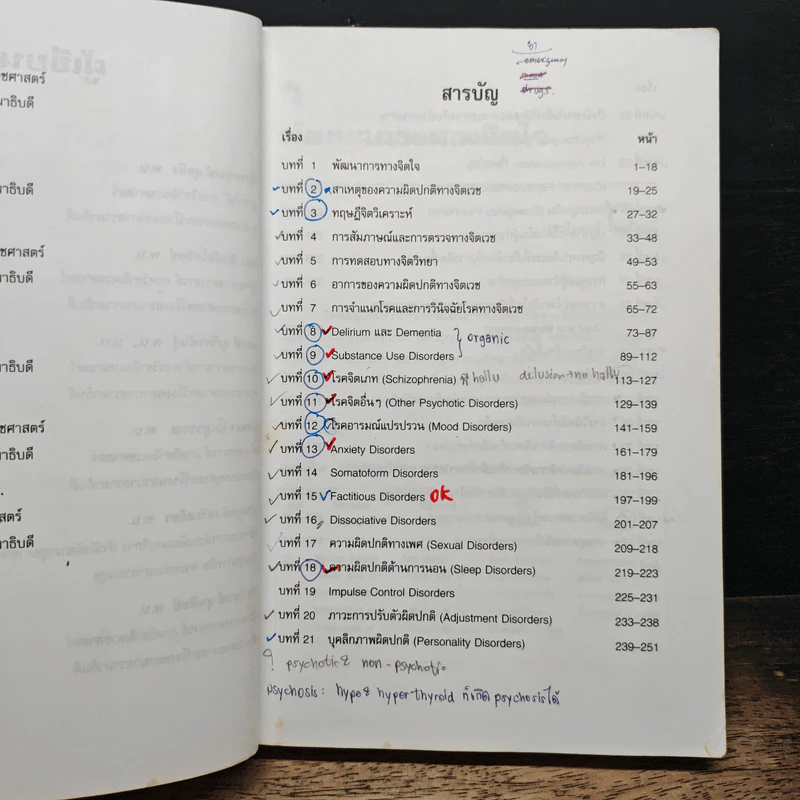 ชศาสตร์
าธิบดี
าธิบดี
ชศาสตร์
าธิบดี
าธิบดี
ชศาสตร์
าธิบดี
ศาสตร์
าธิบดี
ยา
emergency
drugs.
สารบัญ
เรื่อง หน้า
บทที่ 1 พัฒนาการทางจิตใจ 1–18
บทที่ 2 สาเหตุของความผิดปกติทางจิตเวช 19–25
บทที่ 3 ทฤษฎีจิตวิเคราะห์ 27–32
บทที่ 4 การสัมภาษณ์และการตรวจทางจิตเวช 33–48
บทที่ 5 การทดสอบทางจิตวิทยา 49–53
บทที่ 6 อาการของความผิดปกติทางจิตเวช 55–63
บทที่ 7 การจำแนกโรคและการวินิจฉัยโรคทางจิตเวช 65–72
บทที่ 8 Delirium และ Dementia 73–87
organic
บทที่ 9 Substance Use Disorders 89–112
บทที่ 10 โรคจิตเภท (Schizophrenia) hallu delusion → no hallu 113–127
บทที่ 11 โรคจิตอื่นๆ (Other Psychotic Disorders) 129–139
บทที่ 12 โรคอารมณ์แปรปรวน (Mood Disorders) 141–159
บทที่ 13 Anxiety Disorders 161–179
บทที่ 14 Somatoform Disorders 181–196
บทที่ 15 Factitious Disorders OK 197–199
บทที่ 16 Dissociative Disorders 201–207
บทที่ 17 ความผิดปกติทางเพศ (Sexual Disorders) 209–218
บทที่ 18 ความผิดปกติด้านการนอน (Sleep Disorders) 219–223
บทที่ 19 Impulse Control Disorders 225–231
บทที่ 20 ภาวะการปรับตัวผิดปกติ (Adjustment Disorders) 233–238
บทที่ 21 บุคลิกภาพผิดปกติ (Personality Disorders) 239–251
? psychotic & non-psychotic
psychosis: hypo & hyperthyroid ก็เกิด psychosis ได้